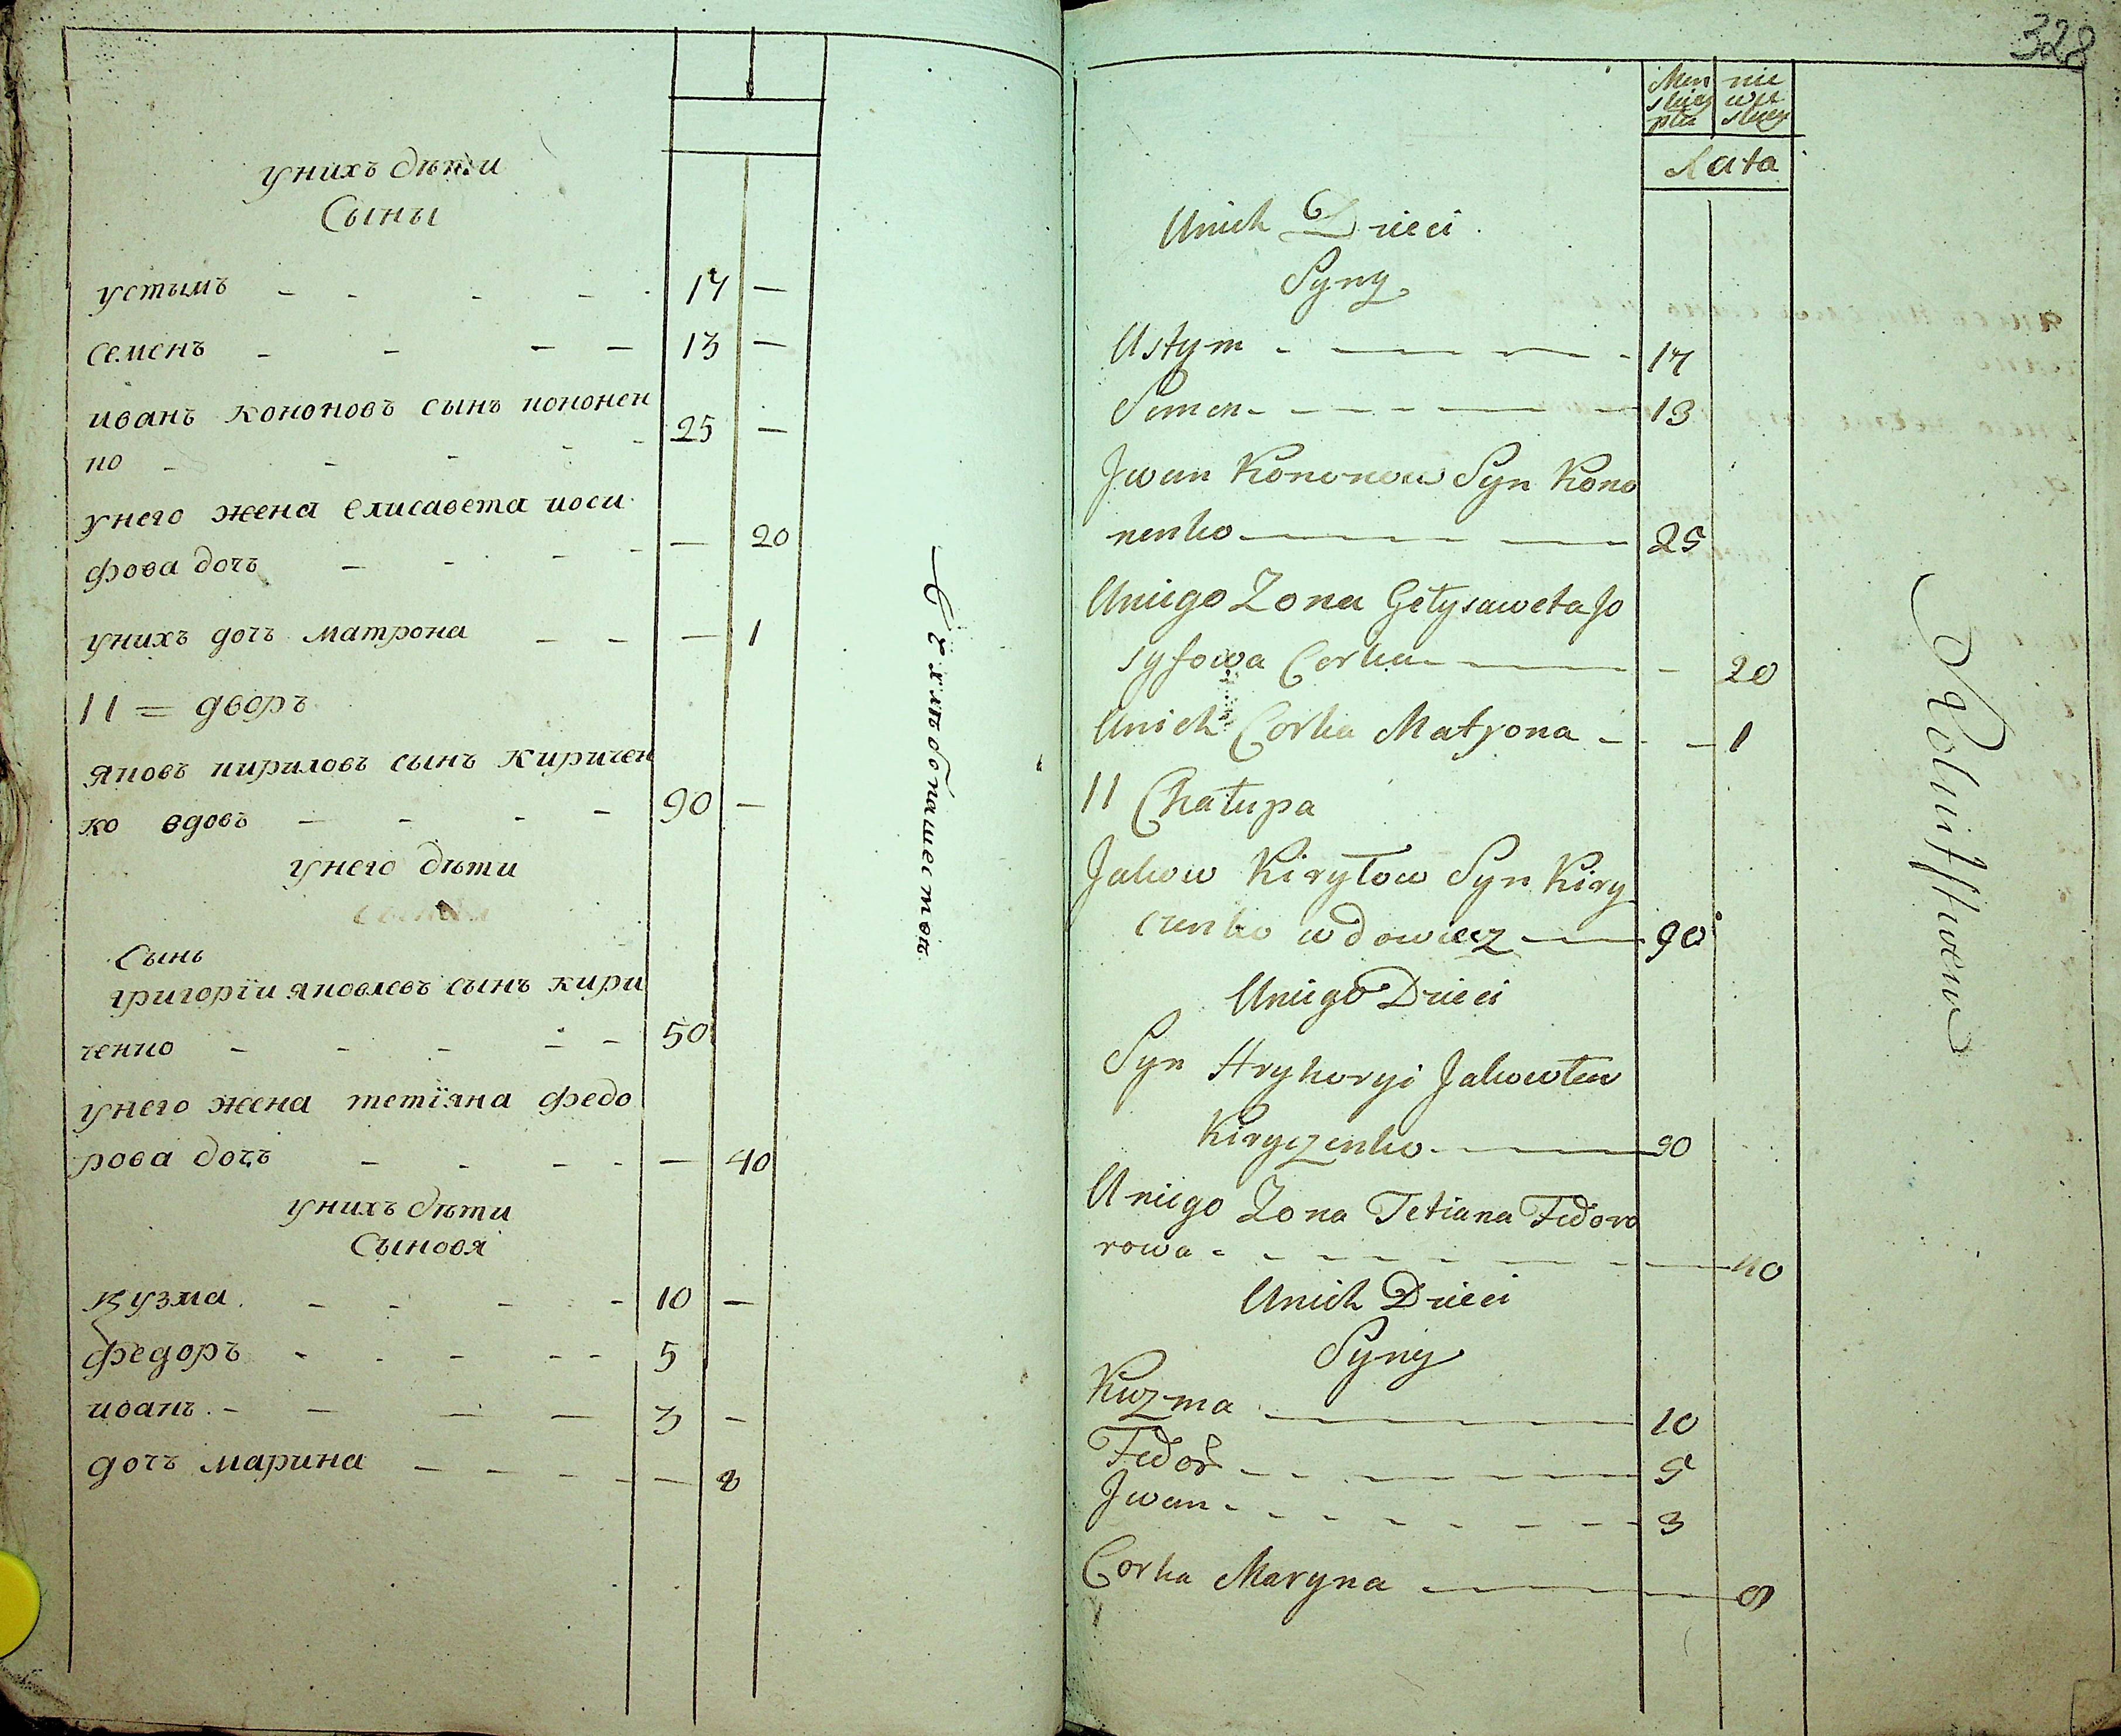 унихъ дѣти
Сыны
устымъ - - - - 14 —
семенъ - - - - 13 —
иванъ кононовъ сынъ кононен
ко - - - - 25 —
унего жена елисавета иоси
фова дочъ - - - - — 20
унихъ дочъ матрона - - — 1
11 = дворъ
яковъ кириловъ сынъ киричен
ко вдовъ - - - - 90 —
унего дѣти
Сынъ
григорїи яковлевъ сынъ кири
ченко - - - - - 50
унего жена тетїяна федо
рова дочъ - - - - — 40
унихъ дѣти
Сыновя
кузма - - - - 10 —
федоръ - - - - - 5
иванъ - - - - 3 —
дочъ марина - - - - — 8
328
Men nie
skiej wie
płci skiey
Lata
Unich Dzieci
Syny
Ustym - - - - 14
Semen - - - - 13
Jwan Kononow Syn Kono
nenko - - - 25
Uniego Zona Gełysaweta Jo
syfowa Corka - - - 20
Unich Corka Matrona - - - 1
11 Chałupa
Jakow Kiryłow Syn Kiry
czenko wdowiec - - 90
Uniego Dzieci
Syn Hryhoryi Jakowłew
Kiryczenko - - - 50
Uniego Zona Tetiana Fedoro
rowa - - - - 40
Unich Dzieci
Syny
Kuzma - - - 10
Fedor - - - 5
Jwan - - - 3
Corka Maryna - - - 8